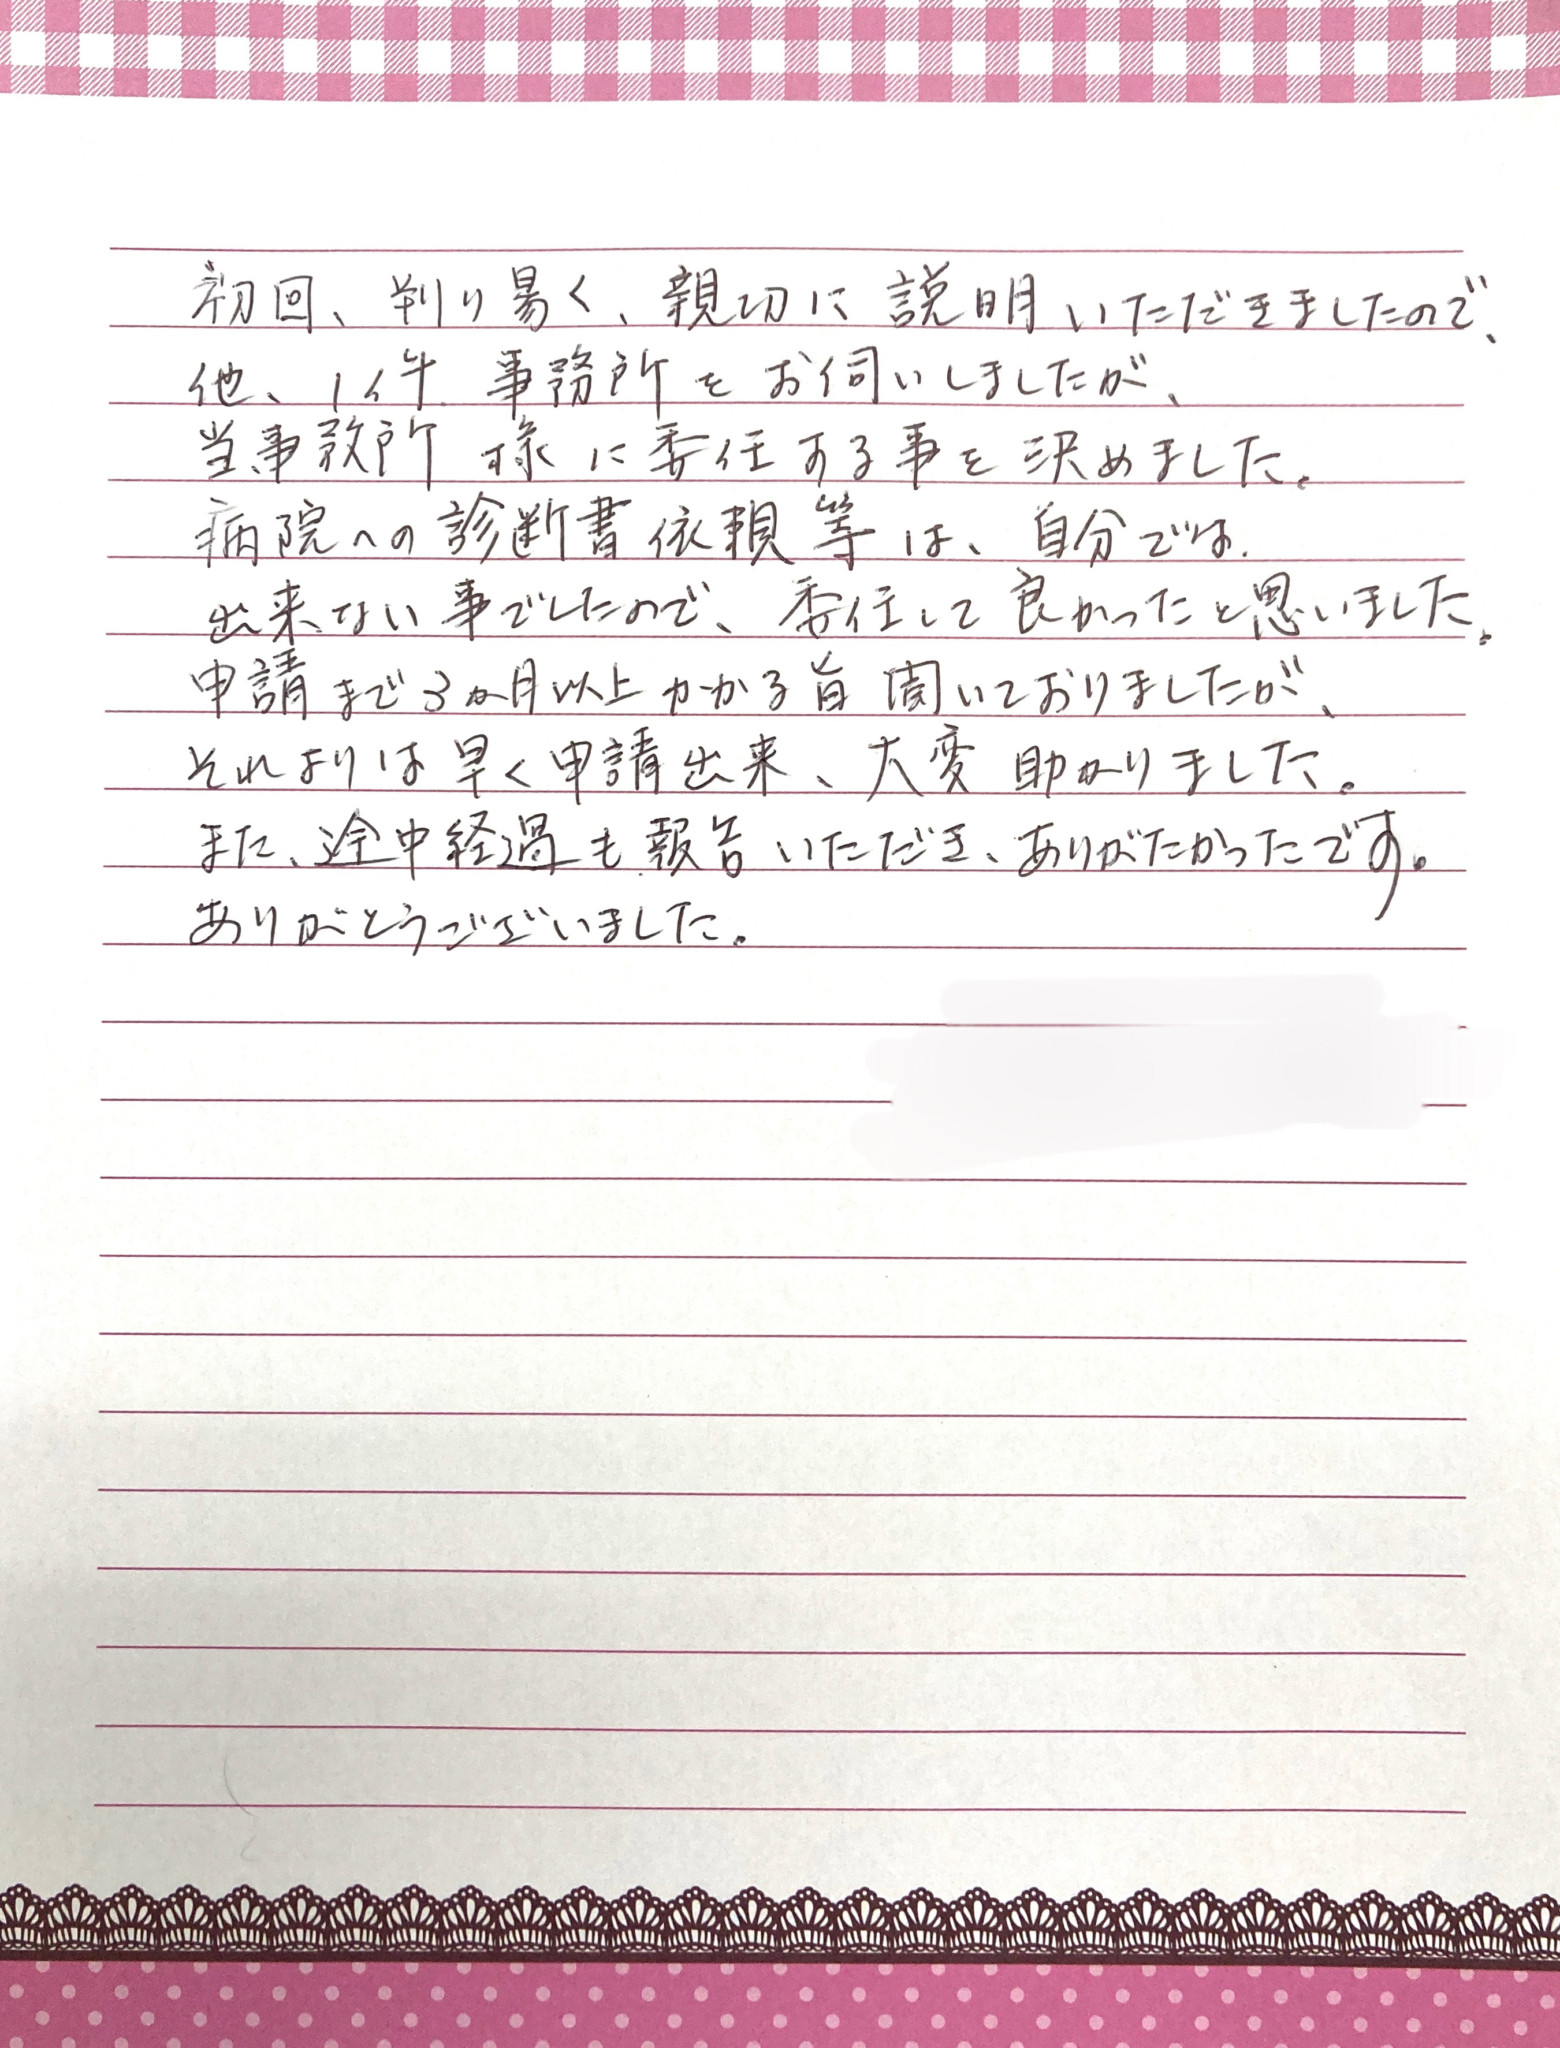 初回、判り易く、親切に説明いただきましたので、
他、1件事務所をお伺いしましたが、
当事務所様に委任する事を決めました。
病院への診断書依頼等は、自分では
出来ない事でしたので、委任して良かったと思いました。
申請まで3か月以上かかる旨聞いておりましたが、
それよりは早く申請出来、大変助かりました。
また、途中経過も報告いただき、ありがたかったです。
ありがとうございました。